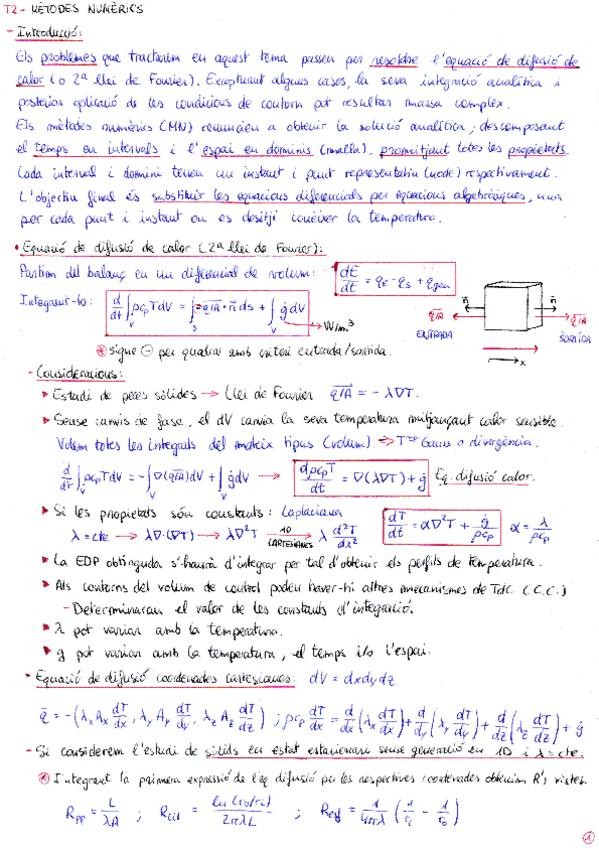 T2 - MÈTODES NUMÈRICS
- Introducció:
Els problemes que tractarem en aquest tema passen per resoldre l'equació de difusió de
calor (o 2ª llei de Fourier). Exceptuant alguns casos, la seva integració analítica i
posterior aplicació de les condicions de contorn pot resultar massa complex.
Els mètodes numèrics (MN) renuncien a obtenir la solució analítica, descomposant
el temps en intervals i l'espai en dominis (malla), promitjant totes les propietats.
Cada interval i domini tenen un instant i punt representatiu (node) respectivament.
L'objectiu final és substituir les equacions diferencials per equacions algebràiques, una
per cada punt i instant on es desitji conèixer la temperatura.
• Equació de difusió de calor (2ª llei de Fourier):
Partim del balanç en un diferencial de volum: dE/dt = qe - qs + qgen
Integrant-ho: d/dt ∫v ρcpTdV = ∫s -q/A · n ds + ∫v ġ dV
W/m³
n n
q/A q/A
ENTRADA SORTIDA
x
* Signe ⊖ per quadrar amb criteri entrada/sortida.
- Consideracions:
▸ Estudi de peces sòlides → Llei de Fourier q/A = -λ∇T.
▸ Sense canvis de fase, el dV canvia la seva temperatura mitjançant calor sensible.
Volem totes les integrals del mateix tipus (volum) → Tª Gauss o divergència.
d/dt ∫v ρcpTdV = -∫v ∇(q/A)dV + ∫v ġ dV → dρcpT/dt = ∇(λ∇T) + ġ Eq. difusió calor.
▸ Si les propietats són constants: Laplaciana dT/dt = α∇²T + ġ/ρcp α = λ/ρcp
λ = cte → λ∇·(∇T) → λ∇²T 1D CARTESIANES → λ d²T/dx²
▸ La EDP obtinguda s'haurà d'integrar per tal d'obtenir els perfils de temperatura.
▸ Als contorns del volum de control poden haver-hi altres mecanismes de TdC (C.C.)
- Determinaran el valor de les constants d'integració.
▸ λ pot variar amb la temperatura.
▸ g pot variar amb la temperatura, el temps i/o l'espai.
- Equació de difusió coordenades cartesianes: dV = dxdydz
q = -(λxAx dT/dx, λyAy dT/dy, λzAz dT/dz) ; ρcp dT/dt = d/dx(λx dT/dx) + d/dy(λy dT/dy) + d/dz(λz dT/dz) + ġ
- Si considerem l'estudi de sòlids en estat estacionari sense generació en 1D i λ = cte.
* Integrant la primera expressió de l'eq difusió per les respectives coordenades obtenim R's vistes
Rpp = L/λA ; Rcil = ln(ro/ri)/2πλL ; Resf = 1/4πλ (1/ri - 1/ro)
1